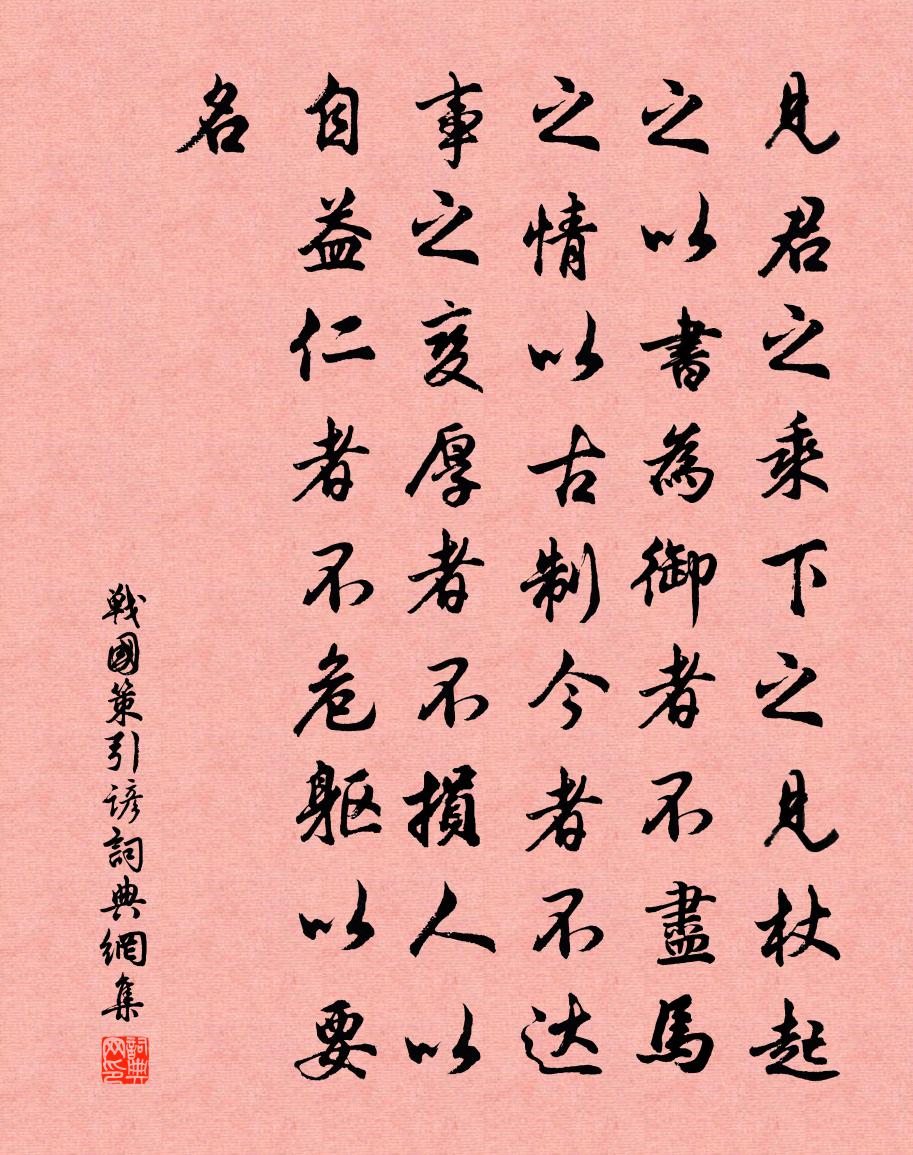 見君之乘下之見杖起
之以書為御者不盡馬
之情以古制今者不达
事之变厚者不損人以
自益仁者不危躯以要
名
戦國策引諺詞典網集
詞典
网印